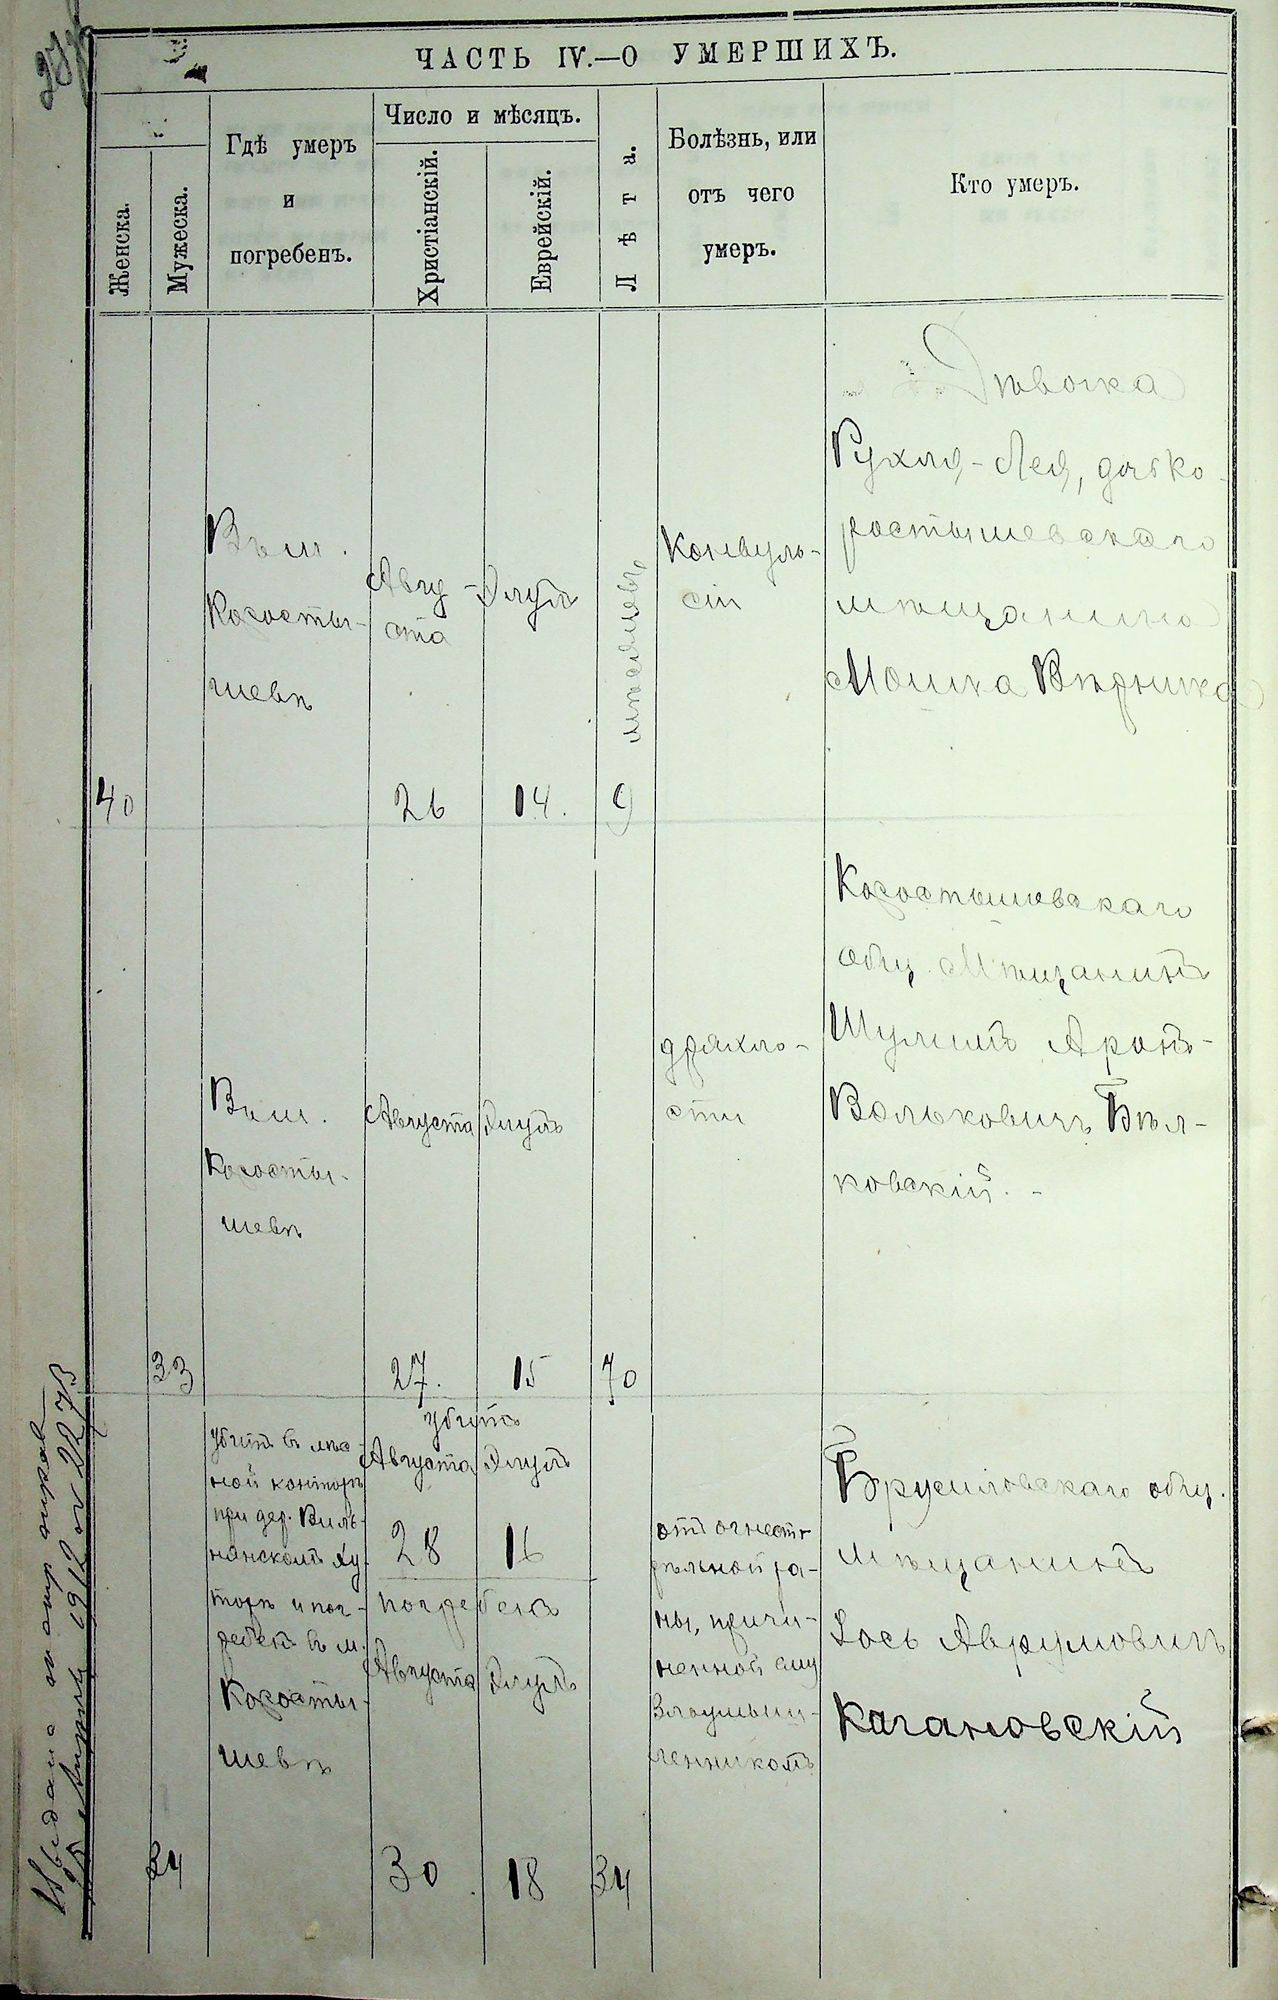 ЧАСТЬ IV.—О УМЕРШИХЪ.
Женска.
Мужеска.
Гдѣ умеръ
и
погребенъ.
Число и мѣсяцъ.
Христіанскій.
Еврейскій.
Лѣта.
Болѣзнь, или
отъ чего
умеръ.
Кто умеръ.
40
Въ м.
Коросты-
шевѣ
Авгу-
ста
26
Элулъ
14.
мѣсяцевъ
9
Конвуль-
сіи
Дѣвочка
Рухля-Лея, дочь Ко-
ростышевскаго
мѣщанина
Мошка Вѣрника
33
Въ м.
Коросты-
шевѣ
Августа
27.
Элулъ
15
70
дряхло-
сти
Коростышевскаго
общ. Мѣщанинъ
Шулимъ Аронъ-
Вольковичъ Бѣл-
ковскій.-
34
убитъ въ лѣс-
ной конторѣ
при дер. Виль-
нянскомъ Ху-
торѣ и пог-
ребенъ въ м.
Коросты-
шевѣ
убитъ
Августа Элулъ
28 16
погребенъ
Августа Элулъ
30 18
34
отъ огнестр
ѣльной ра-
ны, причи-
ненной ему
Злоумыш-
ленникомъ
Брусиловскаго общ.
мѣщанинъ
Іось Аврумовичъ
Кагановскій
Выдана
1912 № 2273